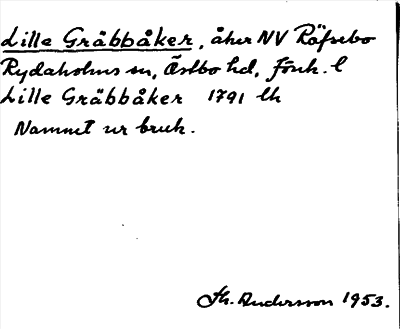 Lille Gråbbåker, åker NV Röfsebo
Rydaholms sn, Östbo hd, Jönk. l
Lille Gråbbåker 1791 lh
Namnet ur bruk.
Th. Andersson 1953.